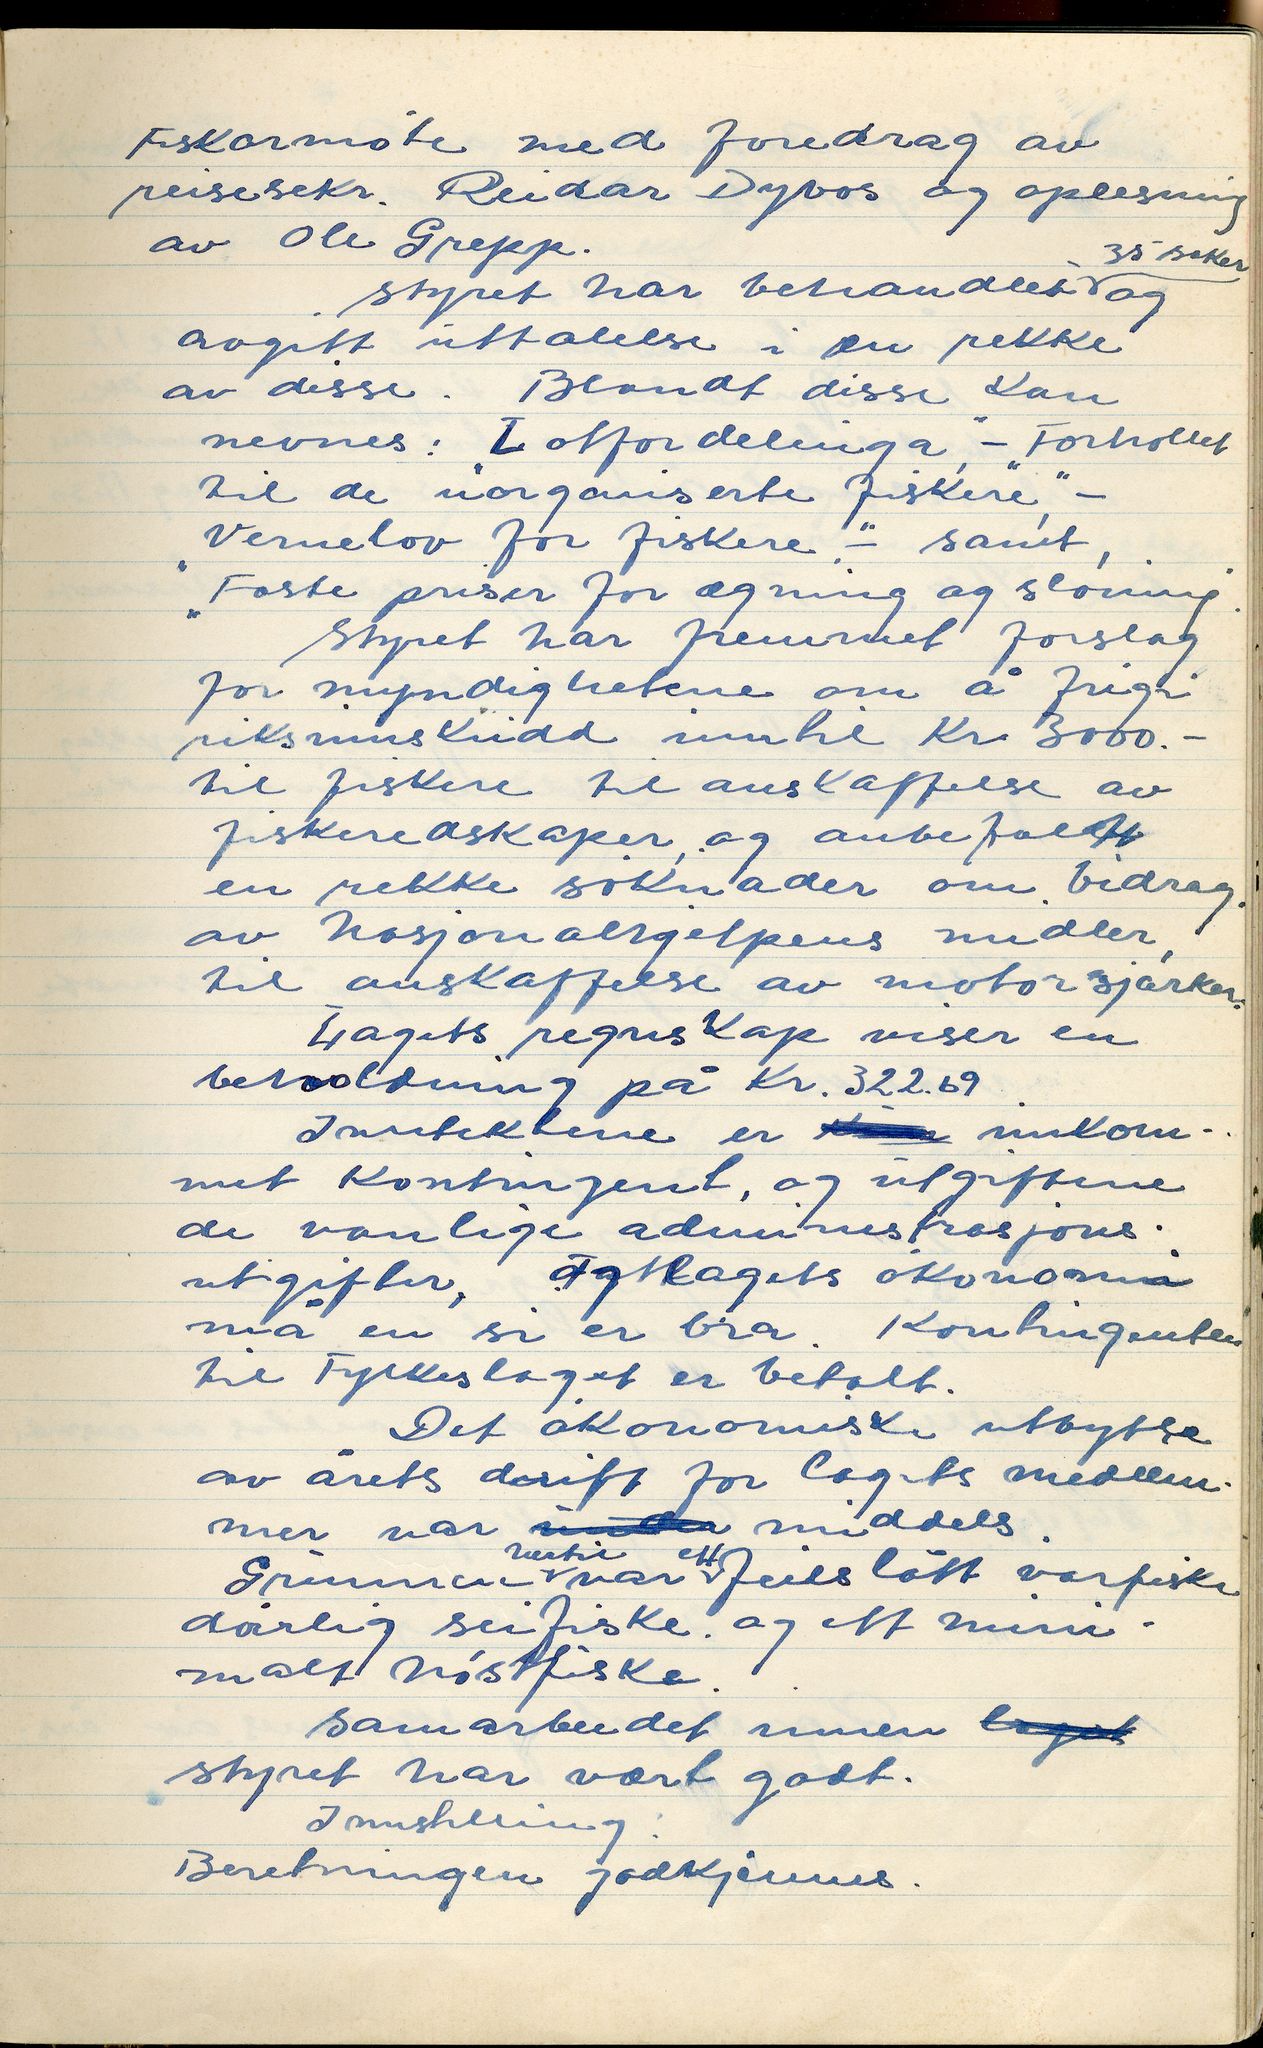 Fiskarmöte med foredrag av
reisesekr. Reidar Dybos og oplesning
av Ole Grepp.
Styret har behandlet 35 saker og
avgitt uttalelse i en rekke
av disse. Blandt disse kan
nevnes: "Lotfordelinga", - "Forhollet
til de uorganiserte fiskere", -
"Vernelov for fiskere" - samt,
"Faste priser for egning og sløning.
Styret har fremmet forslag
for myndighetene om å frigi
riksinnskudd inntil Kr 3000.-
til fiskere til anskaffelse av
fiskeredskaper, og anbefalt
en rekke söknader om bidrag
av Nasjonalhjelpens midler,
til anskaffelse av motorsjarker.
Lagets regnskap viser en
beholdning på Kr. 322.69
Inntektene er innkom-
met kontingent, og utgiftene
de vanlige administrasjons-
utgifter, lagets ökonomi
må en si er bra. Kontingenten
til Fylkeslaget er betalt.
Det ökonomiske utbytte
av årets drift for lagets medlem-
mer var middels.
Grunnen hertil var ett feilslått vårfiske
dårlig seifiske. og ett mini-
malt høstfiske.
Samarbeidet innen
styret har vært godt.
Innstilling:
Beretningen godkjennes.